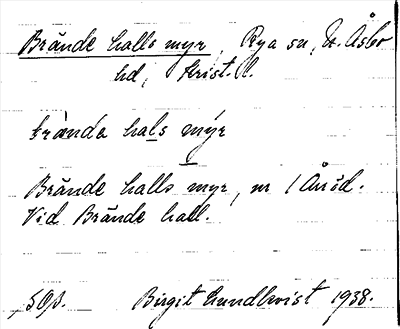 Brände halls myr, Rya sn, N. Åsbo
hd, Krist. l.
bränˈdə hals mýr
Brände halls myr, nr 1 Aröd.
Vid Brände hall.
Birgit Lundkvist 1938.